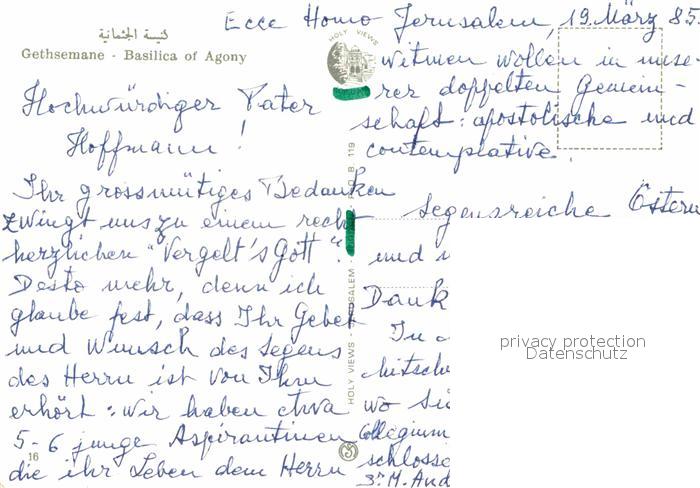 Ecce Homo Jerusalem, 19. März 85.
كنيسة الجثمانية
Gethsemane - Basilica of Agony
Hochwürdiger Pater
Hoffmann!
Ihr grossmütiges Bedanken
zwingt uns zu einem recht
herzlichen "Vergelt's Gott".
Desto mehr, denn ich
glaube fest, dass Ihr Gebet
und Wunsch des Segens
des Herrn ist von Ihm
erhört: wir haben etwa
5-6 junge Aspirantinen
die ihr Leben dem Herrn
16
HOLY VIEWS
B 119
HOLY VIEWS - JERUSALEM
witmen wollen in unse-
rer doppelten Gemein-
schaft: apostolische und
contemplative.
Segensreiche Ostern
und
Dank
In
wo
Collegium
schlosse
Sr. M. And
privacy protection
Datenschutz